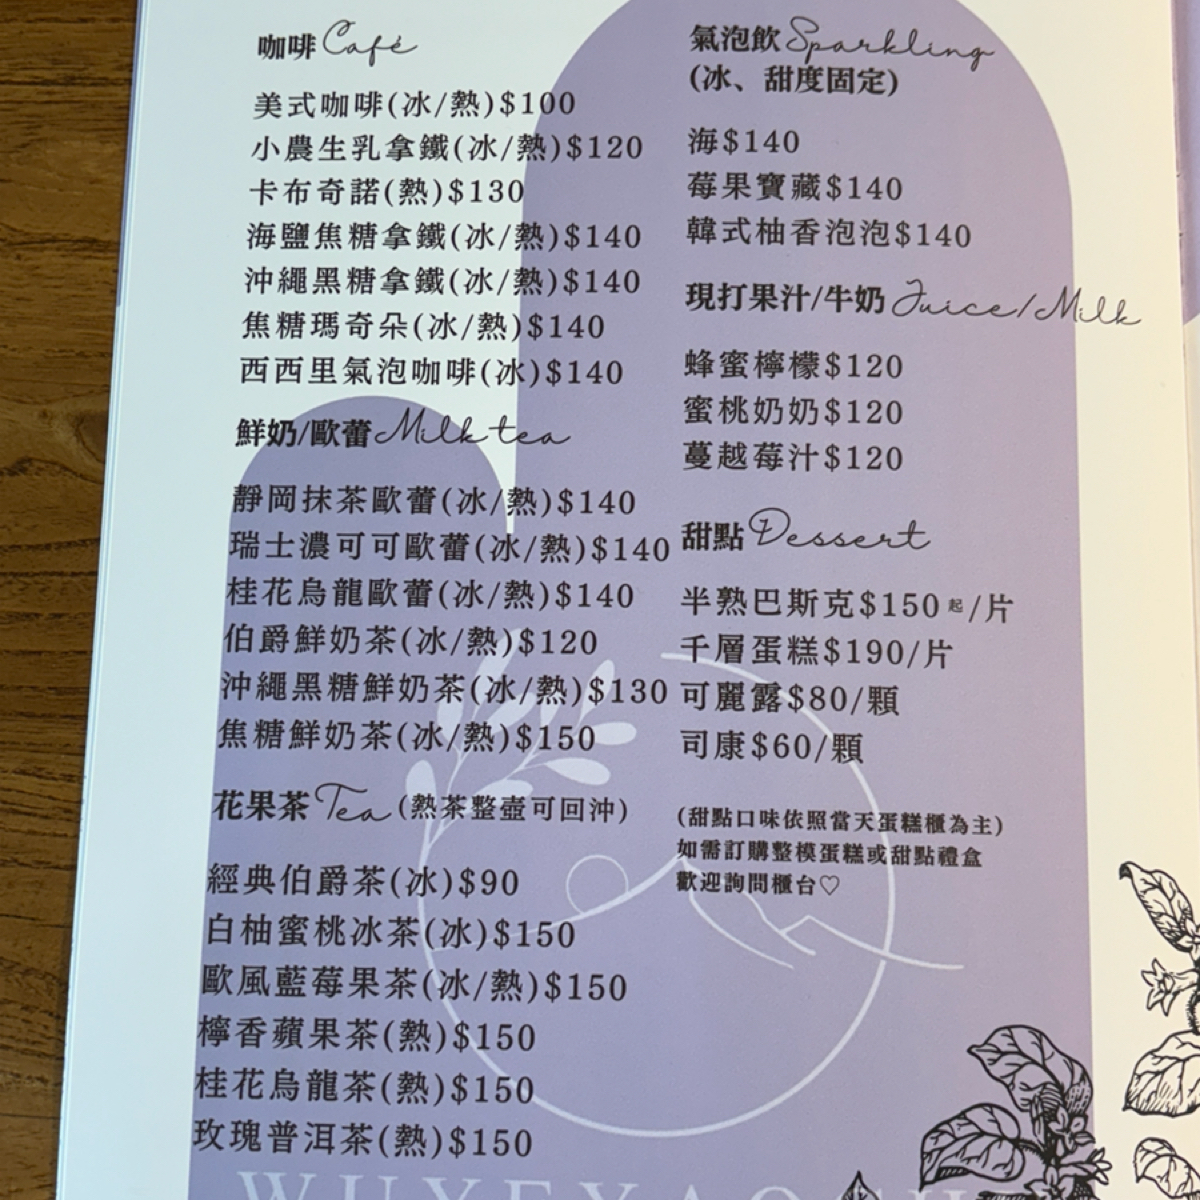 咖啡 Café
美式咖啡(冰/熱)$100
小農生乳拿鐵(冰/熱)$120
卡布奇諾(熱)$130
海鹽焦糖拿鐵(冰/熱)$140
沖繩黑糖拿鐵(冰/熱)$140
焦糖瑪奇朵(冰/熱)$140
西西里氣泡咖啡(冰)$140
鮮奶/歐蕾 Milk tea
靜岡抹茶歐蕾(冰/熱)$140
瑞士濃可可歐蕾(冰/熱)$140
桂花烏龍歐蕾(冰/熱)$140
伯爵鮮奶茶(冰/熱)$120
沖繩黑糖鮮奶茶(冰/熱)$130
焦糖鮮奶茶(冰/熱)$150
花果茶 Tea (熱茶整壺可回沖)
經典伯爵茶(冰)$90
白柚蜜桃冰茶(冰)$150
歐風藍莓果茶(冰/熱)$150
檸香蘋果茶(熱)$150
桂花烏龍茶(熱)$150
玫瑰普洱茶(熱)$150
氣泡飲 Sparkling
(冰、甜度固定)
海$140
莓果寶藏$140
韓式柚香泡泡$140
現打果汁/牛奶 Juice/Milk
蜂蜜檸檬$120
蜜桃奶奶$120
蔓越莓汁$120
甜點 Dessert
半熟巴斯克$150起/片
千層蛋糕$190/片
可麗露$80/顆
司康$60/顆
(甜點口味依照當天蛋糕櫃為主)
如需訂購整模蛋糕或甜點禮盒
歡迎詢問櫃台♡